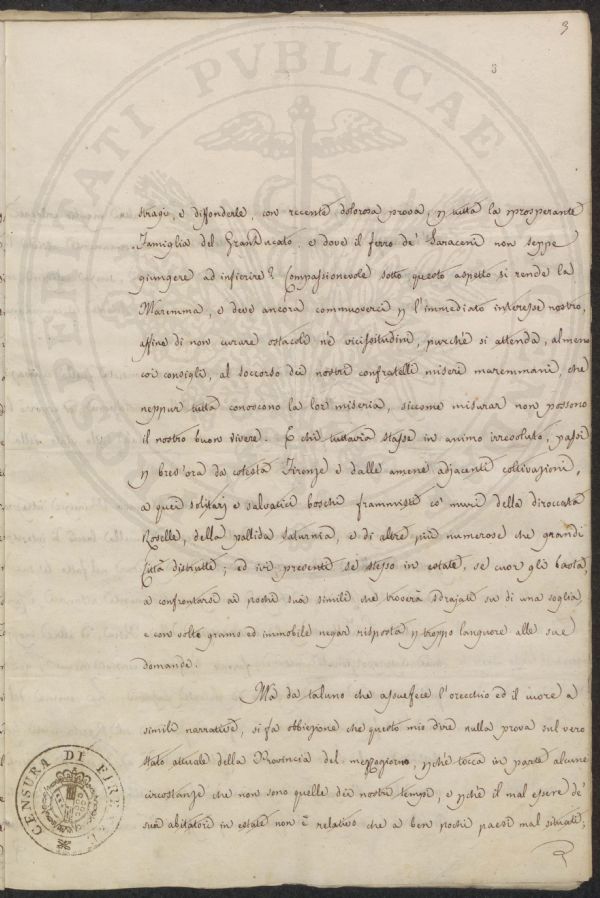 3
3
stragi, e diffonderle, con recente dolorosa prova, p tutta la prosperante
Famiglia del GranDucato, e dove il ferro de' Saraceni non seppe
giungere ad infierire? Compassionevole sotto questo aspetto si rende la
Maremma, e deve ancora commuoverci p l'immediato interesse nostro,
affine di non curare ostacoli nè vicissitudini, purchè si attenda, almeno
coi consigli, al soccorso dei nostri confratelli miseri maremmani, che
neppur tutta conoscono la lor miseria, siccome misurar non possono
il nostro buon vivere. E chi tuttavia stasse in animo irresoluto, passi
p brev'ora da cotesta Firenze e dalle amene adjacenti coltivazioni,
a quei solitarj e salvatici boschi frammisti co' muri della diroccata
Roselle, della pallida Saturnia, e di altre più numerose che grandi
Città distrutte; ed ivi presenti sè stesso in estate, se cuor gli basta,
a confrontarsi ai pochi suoi simili che troverà sdrajati su di una soglia
e con volto gramo ed immobile negar risposta p troppo languore alle sue
domande.
Ma da taluno che assuefece l'orecchio ed il cuore a
simili narrative, si fa obbiezione che questo mio dire nulla prova sul vero
stato attuale della Provincia del mezzogiorno, pchè tocca in parte alcune
circostanze che non sono quelle dei nostri tempi, e pchè il mal essere de'
suoi abitatori in estate non è relativo che a ben pochi paesi mal situati;
OSPERITATI PVBLICAE
CENSURA DI FIRENZE